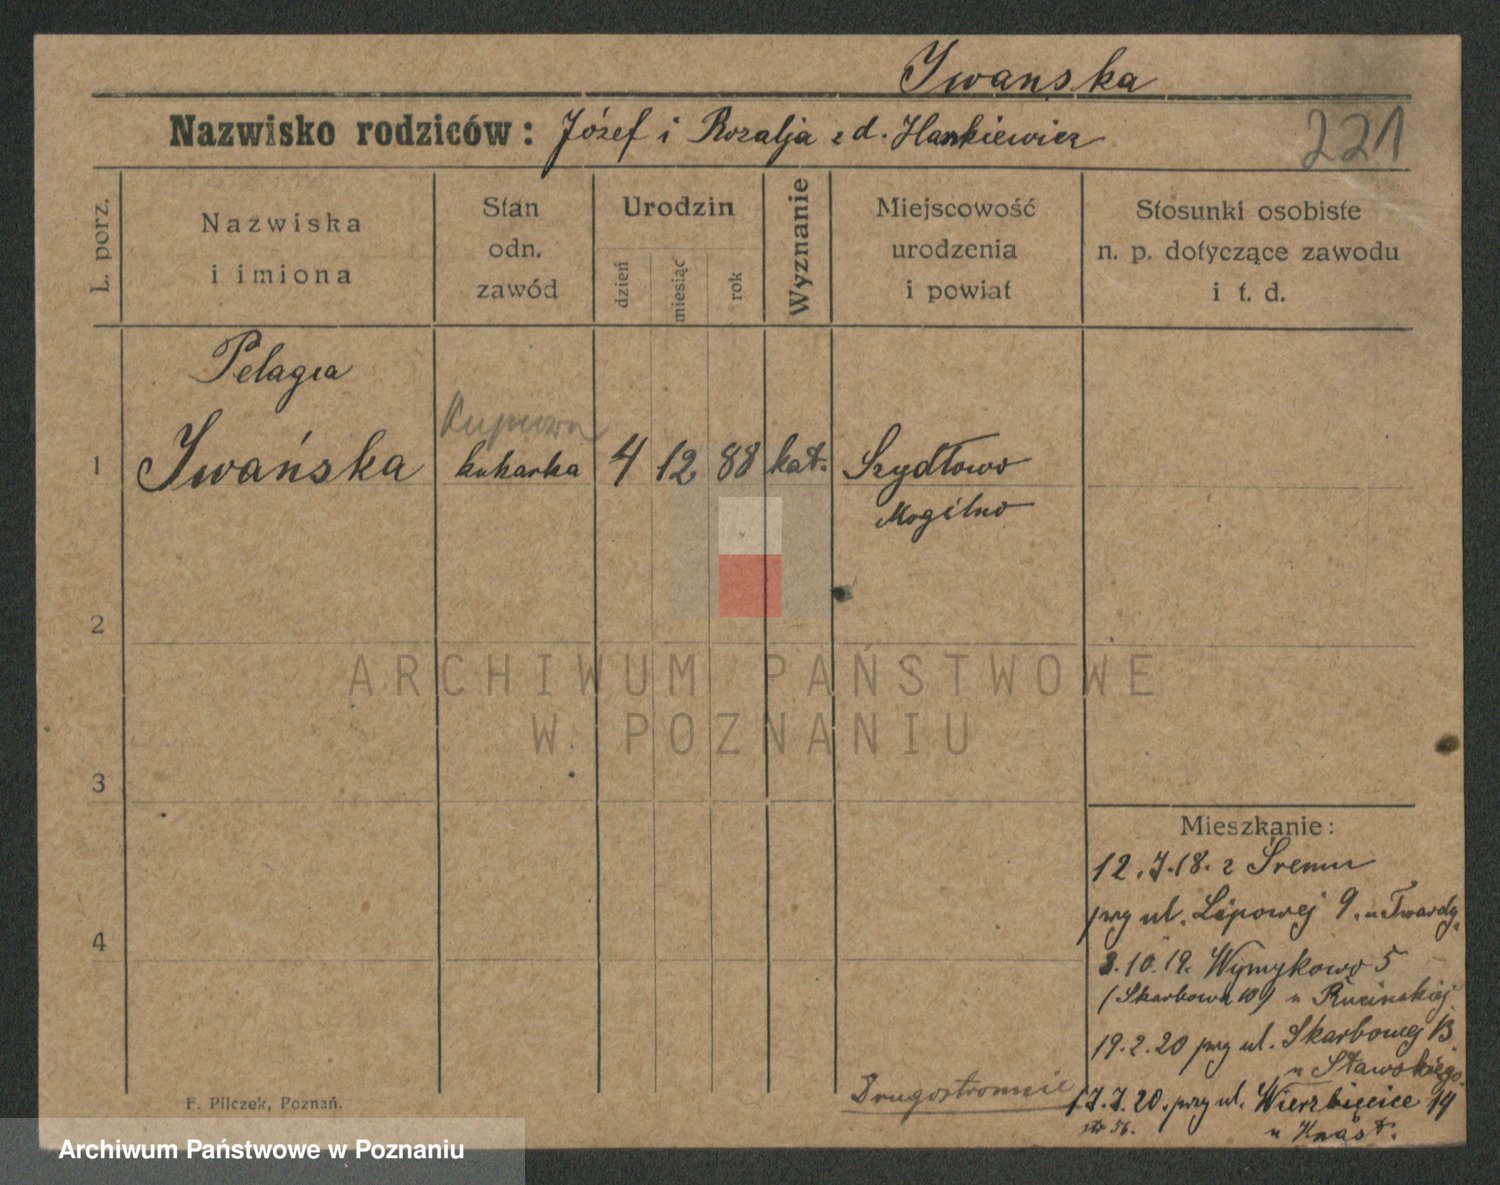 Iwanska
Nazwisko rodziców: Józef i Rozalja z d. Hankiewicz
221
L. porz.
Nazwiska
i imiona
Stan
odn.
zawód
Urodzin
dzień
miesiąc
rok
Wyznanie
Miejscowość
urodzenia
i powiat
Stosunki osobiste
n. p. dotyczące zawodu
i t. d.
Pelagia
1 Iwańska kuharka 4 12 88 kat. Szydłowo
Mogilno
2
ARCHIWUM PAŃSTWOWE
W POZNANIU
3
Mieszkanie:
12.7.18. z Śremu
przy ul. Lipowej 9. u Twardg.
4
3.10.19. Wymykowo 5
(Skarbowa 10) u Rucinskiej
19.2.20 przy ul. Skarbowej 13
u Stawskiego.
Drugostronnie
17.7.20. przy ul. Wierzbięcice 14
u Knast.
F. Pilczek, Poznań.
Archiwum Państwowe w Poznaniu